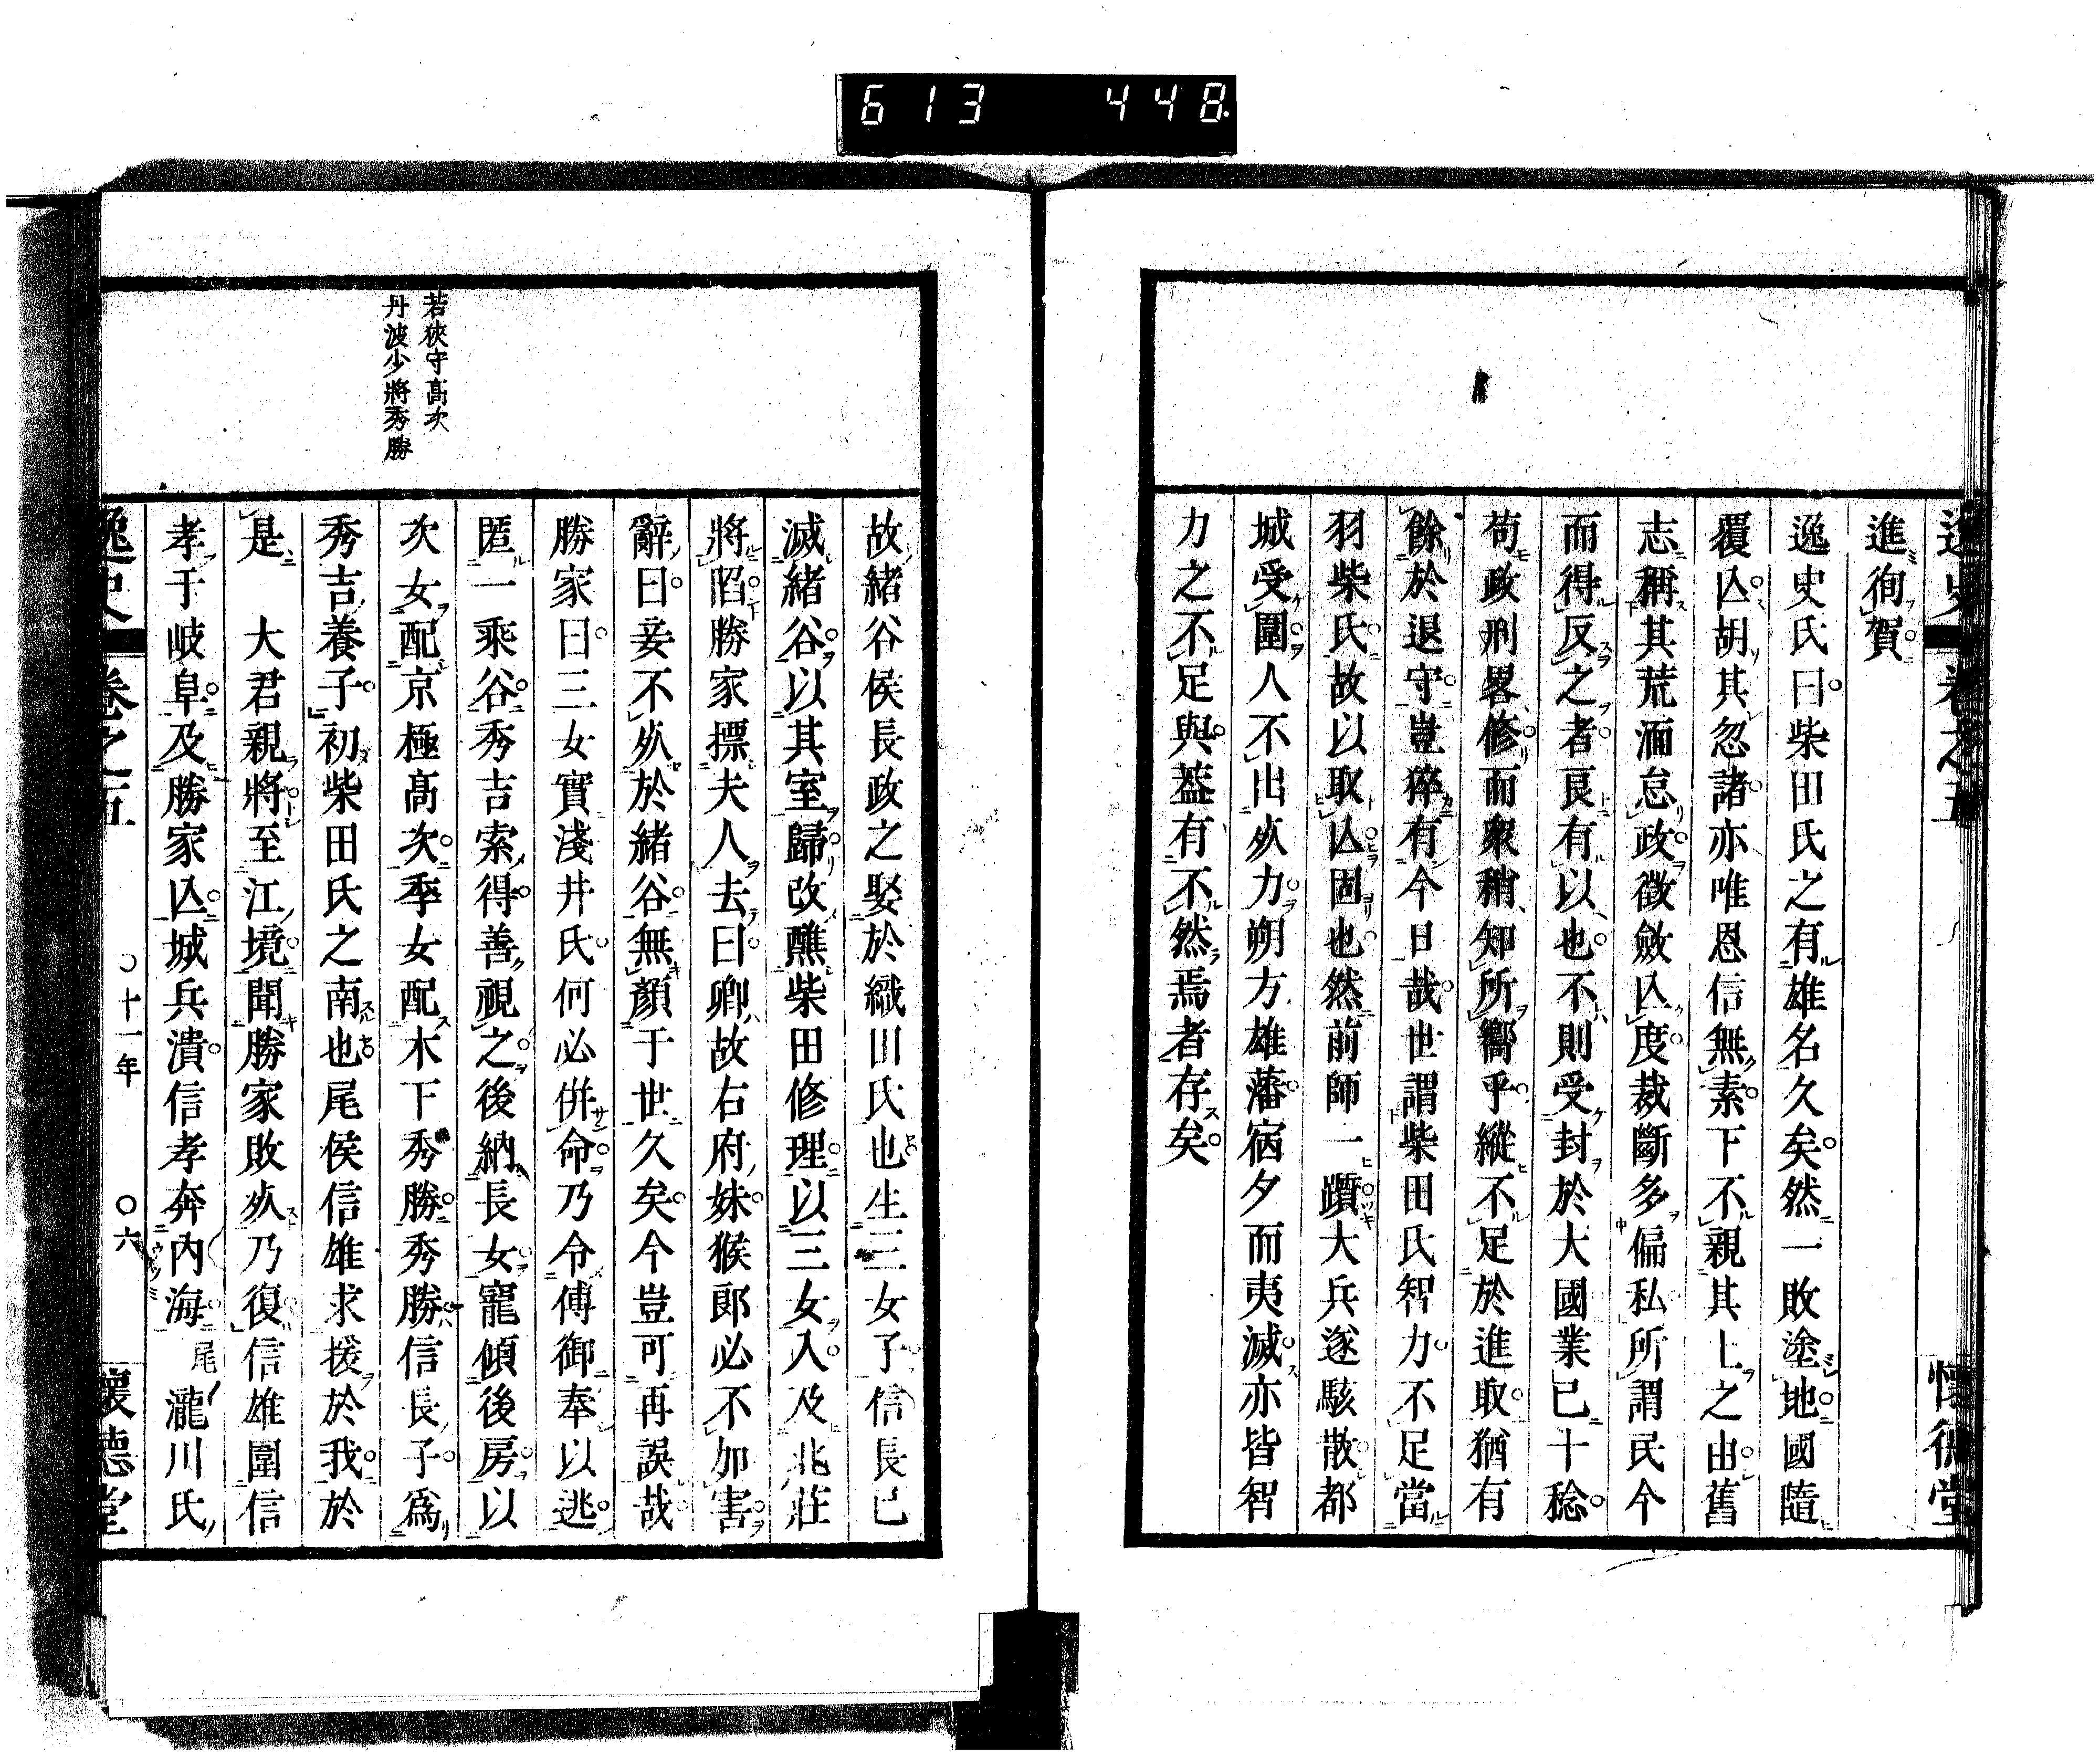 613 448
逸史 卷之五 懷德堂
進徇賀
逸史氏曰柴田氏之有雄名久矣然一敗塗地國隨
覆亾胡其忽諸亦唯恩信無素下不親其上之由舊
志稱其荒湎怠政徵斂亾度裁斷多偏私所謂民今
而得反之者良有以也不則受封於大國業已十稔
苟政刑畧修而衆稍知所嚮乎縱不足於進取猶有
餘於退守豈猝有今日哉世謂柴田氏智力不足當
羽柴氏故以取亾固也然前師一躓大兵遂駭散都
城受圍人不出歺力朔方雄藩宿夕而夷滅亦皆智
力之不足與葢有不然焉者存矣
故緒谷侯長政之娶於織田氏也生三女子信長已
滅緒谷以其室歸改醮柴田修理以三女入及北莊
將陷勝家摽夫人去曰卿故右府妹猴郎必不加害
辭曰妾不歺於緒谷無顏于世久矣今豈可再誤哉
勝家曰三女實淺井氏何必倂命乃令傅御奉以逃
匿一乘谷秀吉索得善視之後納長女寵傾後房以
次女配京極高次季女配木下秀勝秀勝信長子爲
秀吉養子初柴田氏之南也尾侯信雄求援於我於
是 大君親將至江境聞勝家敗歺乃復信雄圍信
孝于岐阜及勝家亾城兵潰信孝奔內海尾瀧川氏
若狹守高次
丹波少將秀勝
逸史 卷之五 ○十一年 ○六 懷德堂